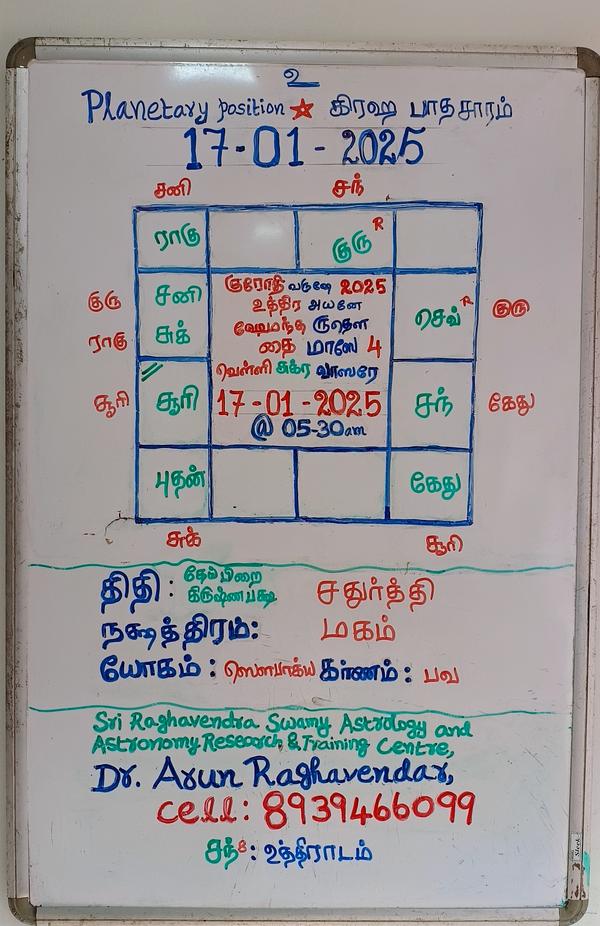 உ
Planetary position ★ கிரஹ பாதசாரம்
17-01-2025
சனி சந்
ராகு குரு R
குரோதி வருஷே 2025
குரு சனி உத்திர அயனே செவ் R குரு
ராகு சுக் ஹேமந்த ருதௌ
தை மாஸே 4
வெள்ளி சுக்ர வாஸரே
சூரி சூரி 17-01-2025 சந் கேது
@ 05-30am
புதன் கேது
சுக் சூரி
திதி : தேய்பிறை கிருஷ்ணபக்ஷ சதுர்த்தி
நக்ஷத்திரம்: மகம்
யோகம் : ஸௌபாக்ய கர்ணம் : பவ
Sri Raghavendra Swamy Astrology and
Astronomy Research & Training Centre,
Dr. Arun Raghavendar,
cell : 8939466099
சந் 8 : உத்திராடம்